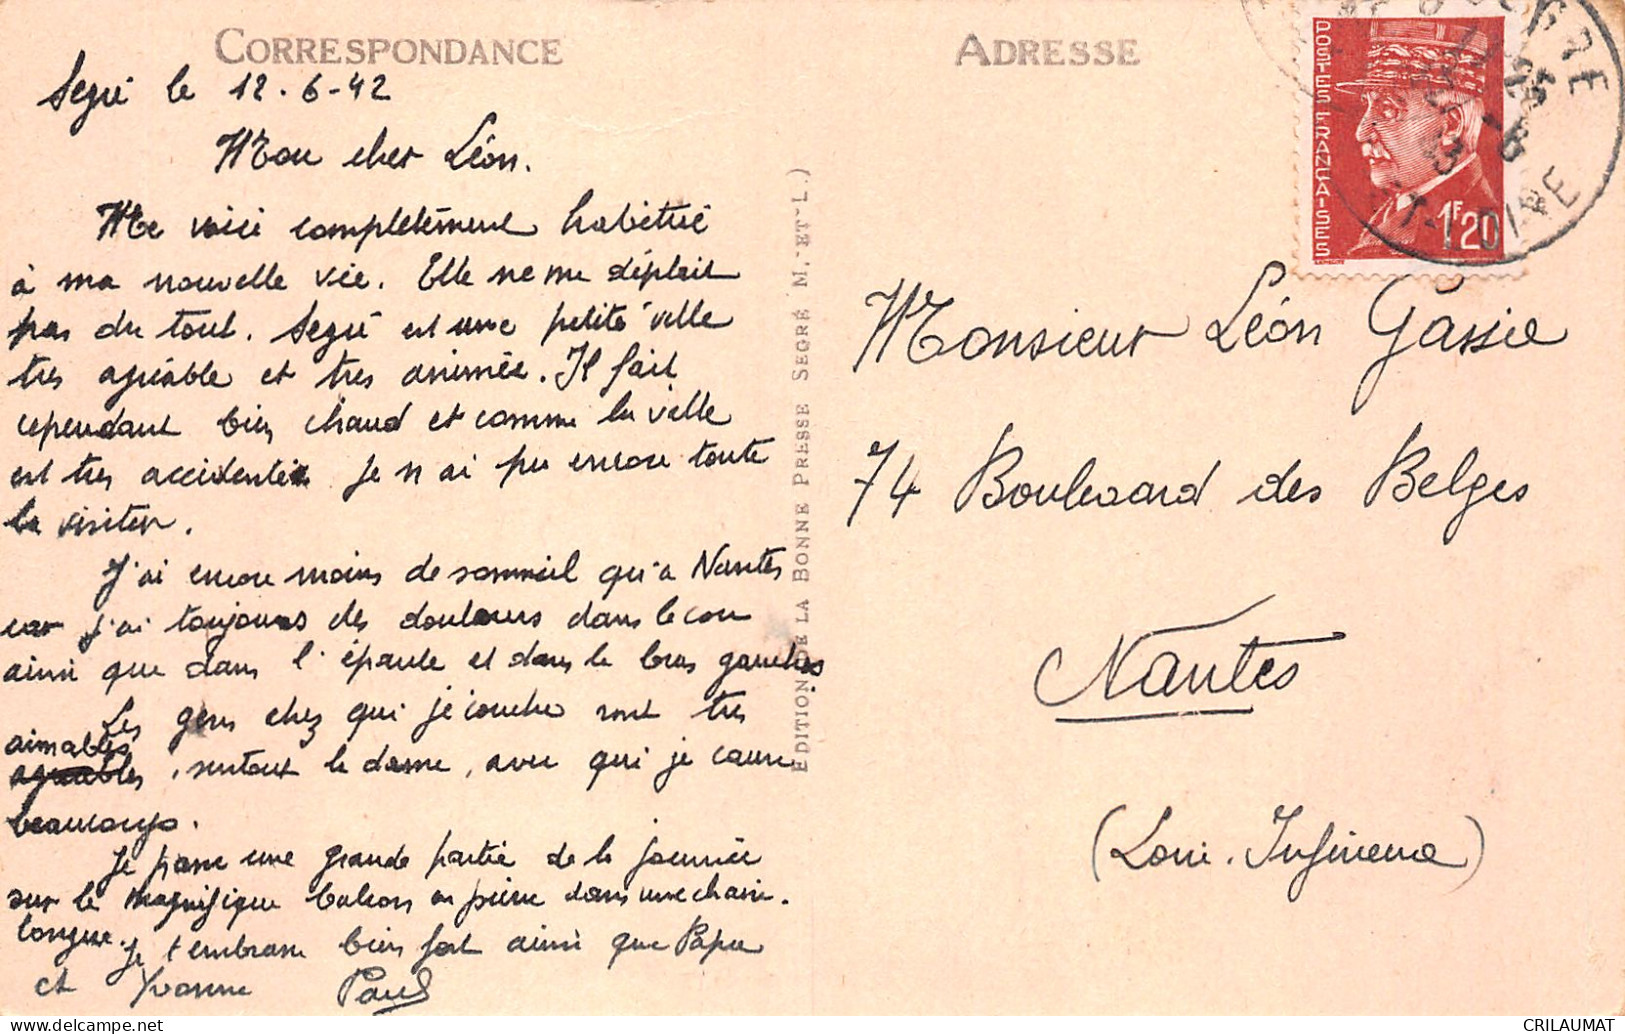 CORRESPONDANCE
Segré le 12-6-42
Mon cher Léon.
Me voici complètement habitué
à ma nouvelle vie. Elle ne me déplait
pas du tout. Segré est une petite ville
très agréable et très animée. Il fait
cependant bien chaud et comme la ville
est très accidentée je n'ai pu encore toute
la visiter.
J'ai encore moins de sommeil qu'a Nantes
car j'ai toujours des douleurs dans le cou
ainsi que dans l'épaule et dans le bras gauches
Les gens chez qui je couche sont très
aimables
agréables, surtout la dame, avec qui je cause
beaucoup.
Je passe une grande partie de la journée
sur le magnifique balcon en pierre dans une chaise-
longue. Je t'embrasse bien fort ainsi que Papa
et Yvonne Paul
EDITION DE LA BONNE PRESSE SEGRÉ M.-ET-L.)
ADRESSE
POSTES FRANÇAISES
1F20
SEGRÉ
ET-LOIRE
Monsieur Léon Gassie
74 Boulevard des Belges
Nantes
(Loire. Inférieure)
CRILAUMAT